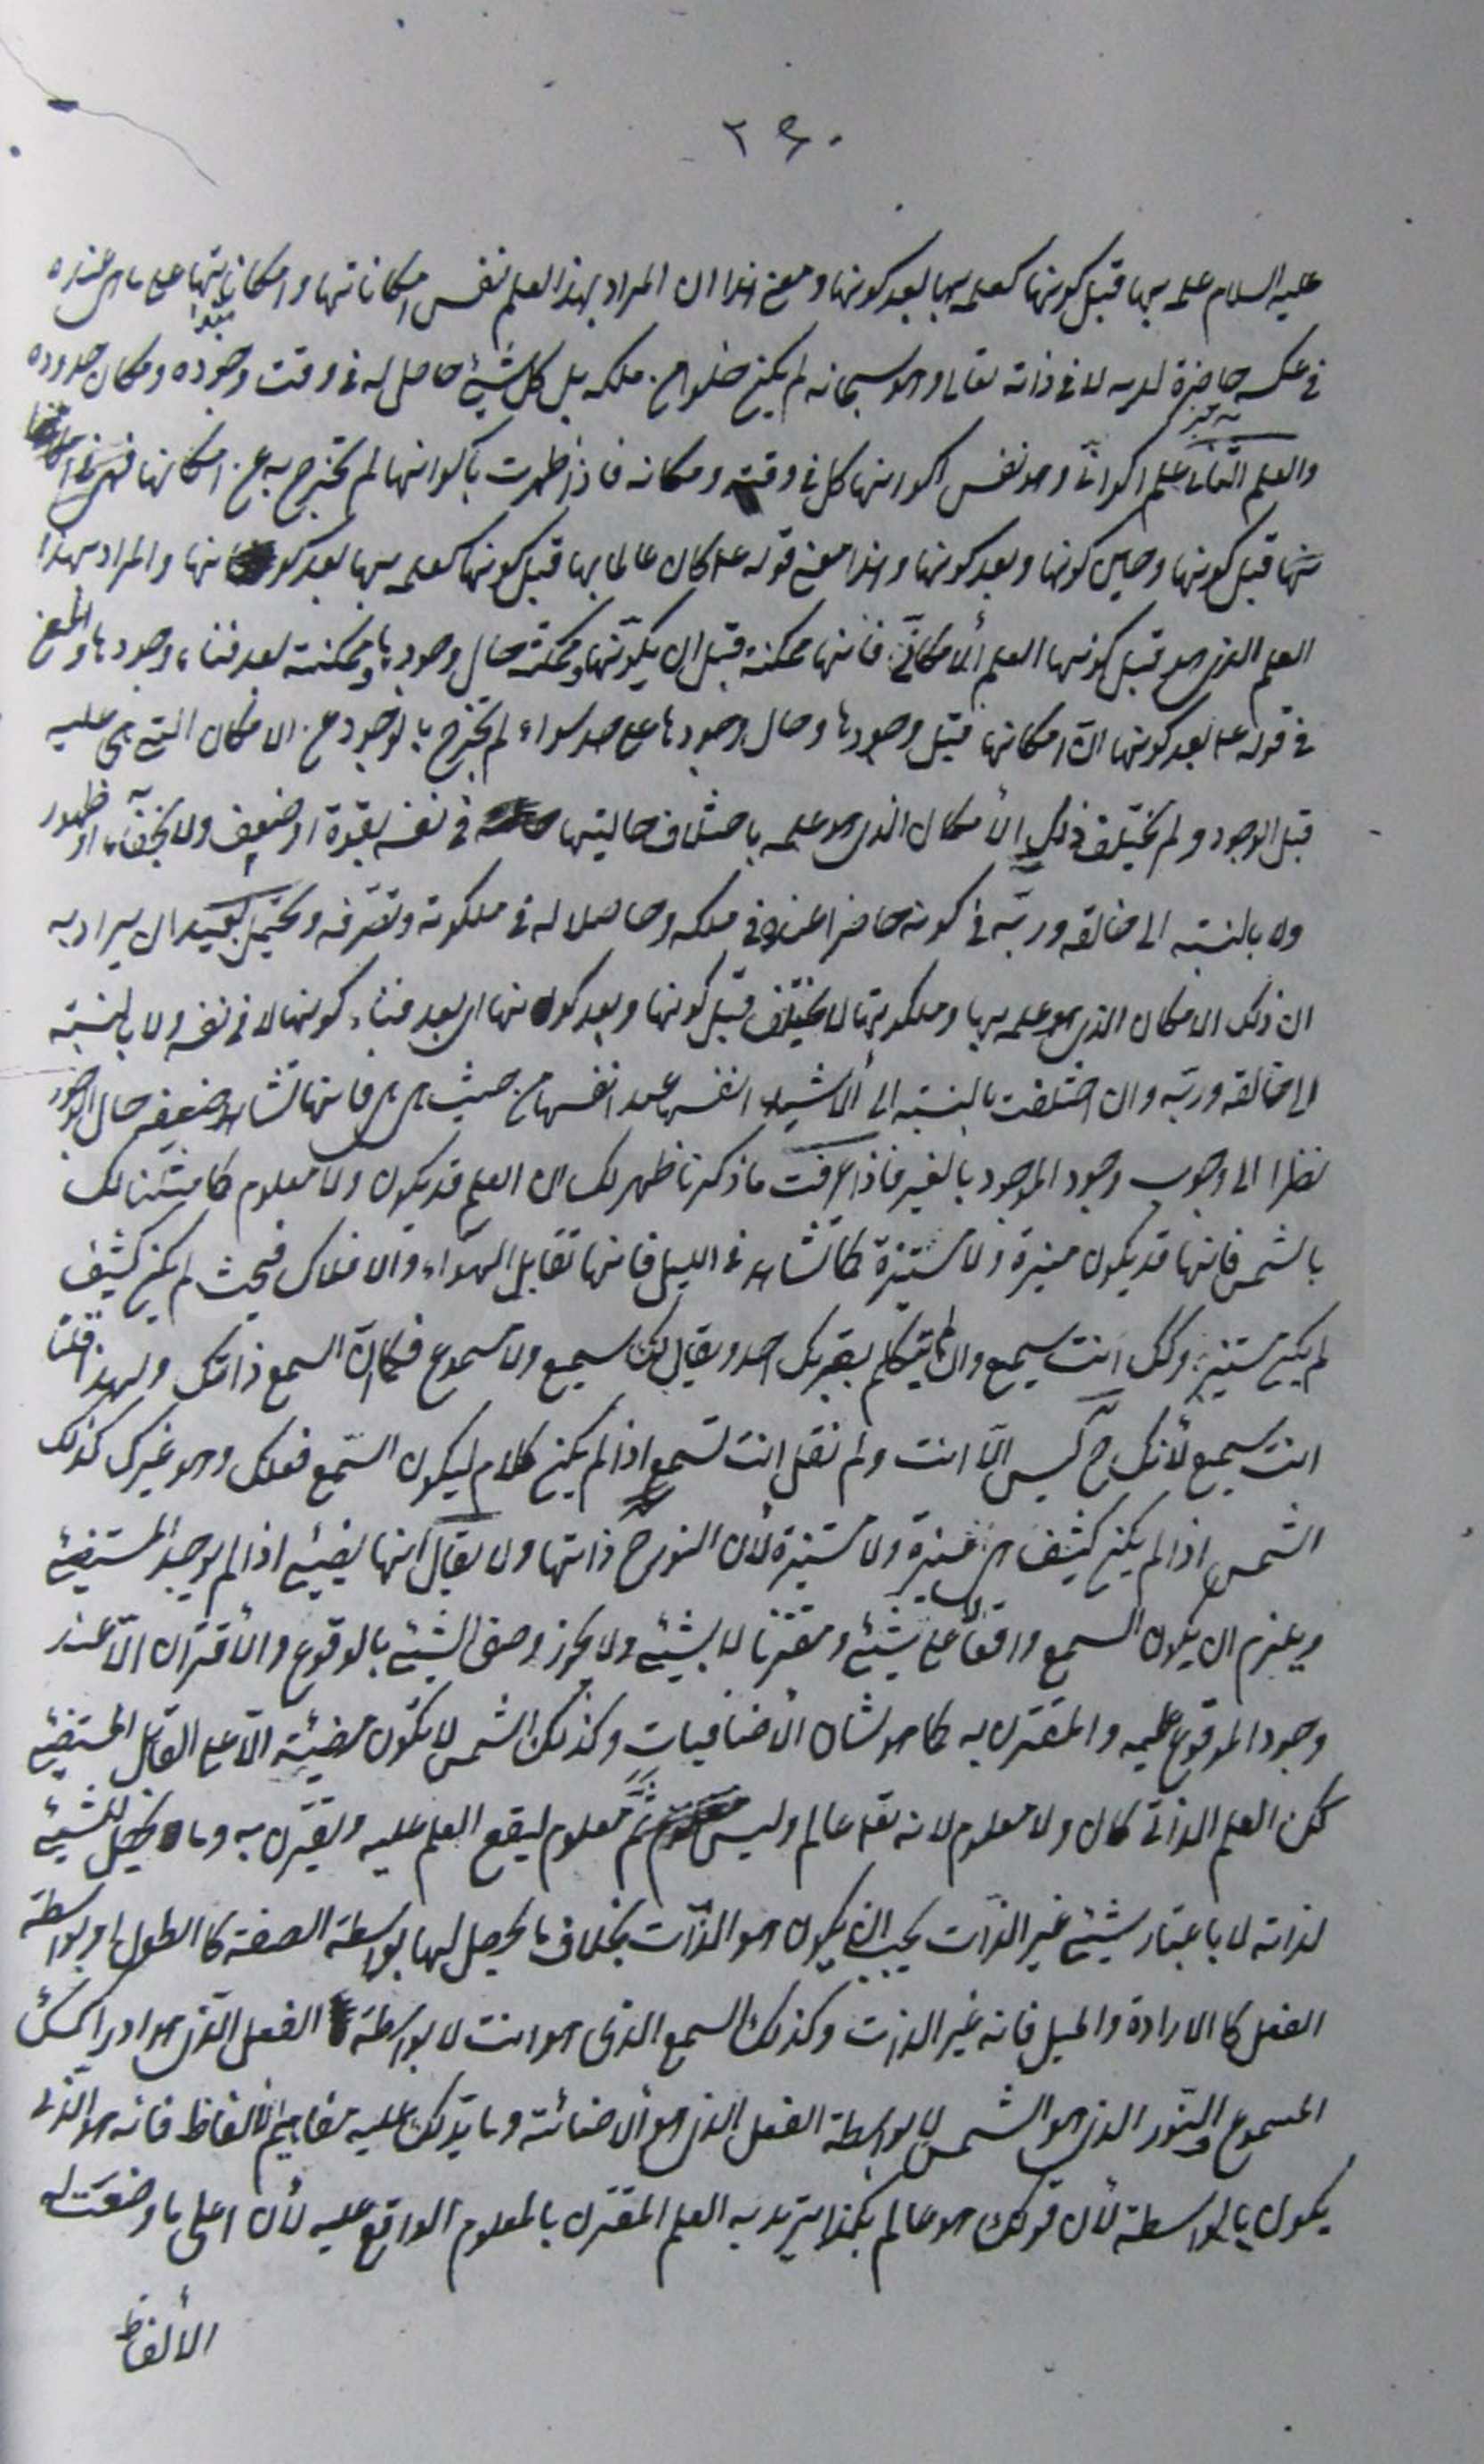 ٢٤٠
عليه السلام علمه بها قبل كونها كعلمه بها بعد كونها ومعنى هذا ان المراد بهذا العلم نفس امكاناتها وامكاناتها على ما هي عنده
في ملكه حاضرة لديه لا في ذاته تعالى وهو سبحانه لم يكن خلوا من ملكه بل كل شيئ حاصل له في وقت وجوده ومكان حدوده
والعلم الثاني علم اكواني وهو نفس اكوانها كل في وقته ومكانه فاذا ظهرت بأكوانها لم تخرج به عن امكانها فهي في
قبل كونها وحين كونها وبعد كونها وهذا معنى قوله ع كان عالما بها قبل كونها كعلمه بها بعد كونها والمراد بهذا
العلم الذي هو قبل كونها العلم ألامكانّي فانها ممكنة قبل ان يكوّنها وممكنة حال وجودها وممكنة بعد فناء وجودها والمعنى
في قوله ع بعد كونها انّ امكانها قبل وجودها وحال وجودها على حد سواء لم تخرج بالوجود عن الامكان التي هي عليه
قبل الوجود ولم يختلف ذلك الأمكان الذي هو علمه باختلاف حاليتها في نفسه بقوة او ضعف ولا بخفاء او ظهور
ولا بالنسبه الى خالقه وربّه في كونه حاضرا عنده في ملكه وحاصلا له في ملكوته وتصرّفه ويحتمل بعيدا ان يراد به
ان ذلك الامكان الذي هو علمه بها وملكوتها لا يختلف قبل كونها وبعد كونها اي بعد فناء كونها لا في نفسه ولا بالنسبته
الى خالقه وربّه وان اختلفت بالنسبته الى ألاشياء انفسها عند انفسها من حيث هي هي فانها تشاهد ضعيفه حال الوجود
نظرا الى وجوب وجود الموجود بالغير فاذا عرفت ما ذكرنا ظهر لك ان العلم قد يكون ولا معلوم كما مثلنا لك
بالشمس فانها قد يكون منيرة ولا مستنيرة كما تشاهد في الليل فانها تقابل الهواء والافلاك فحيث لم يكن كثيف
لم يكن مستنير وكك انت سميع وان لم يتكلم بقربك احد ويقال لك سميع ولا مسموع فكان السمع ذاتك ولهذا قلنا
انت سميع لأنك ح ليس الّا انت ولم نقل انت تسمع اذا لم يكن كلام ليكون السّمع فعلك وهو غيرك كذلك
الشمس اذا لم يكن كثيف هي منيرة ولا مستنيرة لأن النور ح ذاتها ولا يقال انها يضيئ اذا لم يوجد المستضيئ
ويلزم ان يكون السمع واقعاً على شيئ ومقترنا بشيئ ولا يجوز وصف الشيئ بالوقوع والأقتران الّا عند
وجود الموقوع عليه والمقترن به كما هو شان الأضافيات وكذلك الشمس لا تكون مضيئة الّا على القابل المستضيئ
كك العلم الذاتي كان ولا معلوم لانه تعه عالم وليس ثَمَّ معلوم ليقع العلم عليه ويقترن به وما يحصل للشيئ
لذاته لا باعتبار شيئ غير الذات يجب ان يكون هو الذات بخلاف ما يحصل لها بواسطة الصفة كالطول او بواسطة
الفعل كالارادة والميل فانه غير الذات وكذلك السمع الذي هو انت لا بواسطة الفعل الذي هو ادراكك
المسموع والنّور الذي هو الشمس لا بواسطة الفعل الذي هو ألاضائة وما يدلك عليه مفاهيم الألفاظ فانه هو الذي
يكون بالواسطة لأن قولك هو عالم بكذا تريد به العلم المقترن بالمعلوم الواقع عليه لأن اعلى ما وضعت له
الألفاظ